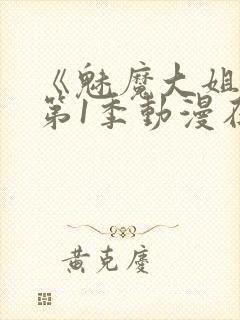 《魅魔大姐
第1季動漫在
黄克廢